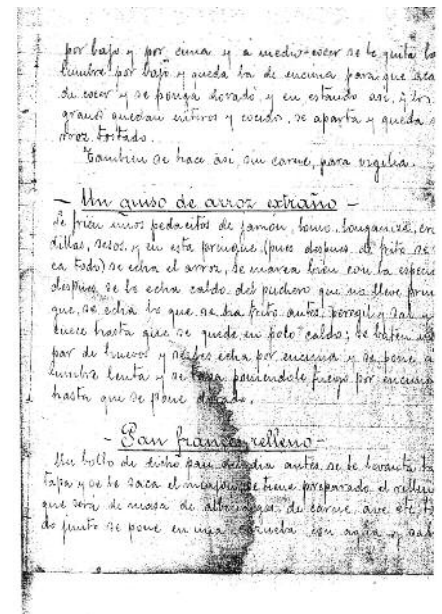 por bajo y por cima y a medio cocer se le quita la
lumbre por bajo y queda la de encima para que aca
de cocer y se ponga dorado, y en estando así, y los
granos quedan enteros y cocidos, se aparta y queda
arroz tostado.
Tambien se hace así, sin carne, para vigilia.
- Un guiso de arroz extraño -
Se frien unos pedacitos de jamón, lomo, longaniza,
dillas, sesos, y en esta pringue (pues despues de frito se
ca todo) se echa el arroz, se marea bien con la especia
despues se le echa caldo del puchero que no lleve prin
que, se echa lo que se ha frito antes, peregil y sal y
cuece hasta que se quede en poco caldo; se baten un
par de huevos y se les echa por encima y se pone a
lumbre lenta y se tapa poniendole fuego por encima
hasta que se pone dorado.
- Pan francés relleno -
Un bollo de dicho pan del dia antes, se le levanta la
tapa y se le saca el migajón, se tiene preparado el rellen
que será de masa de albóndigas, de carne, ave etc, t
do junto se pone en una cazuela con agua y sal